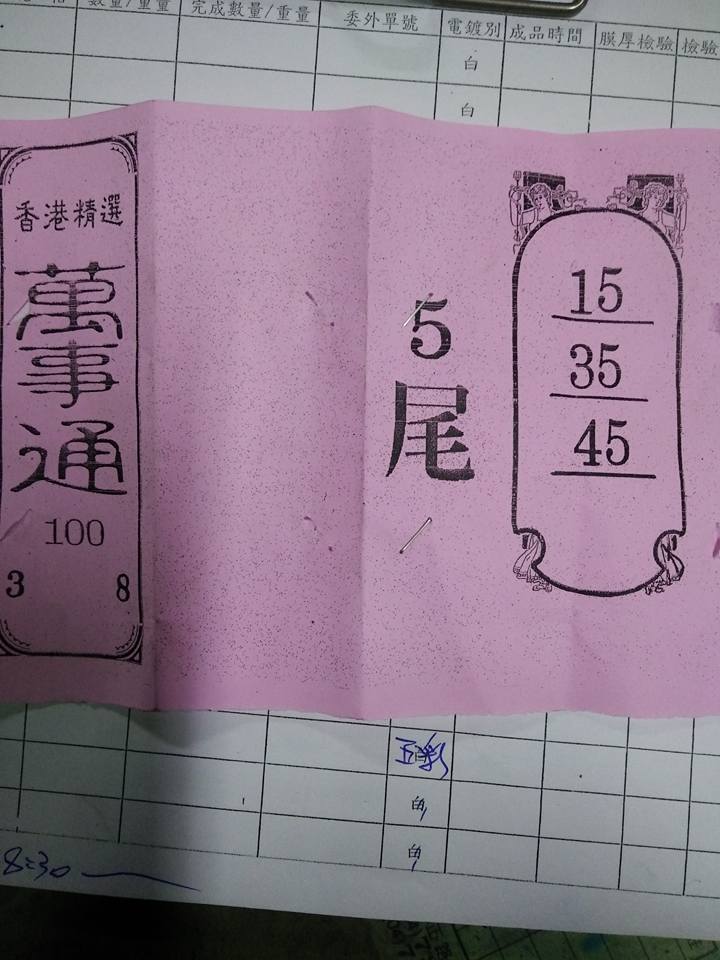 數量/重量 完成數量/重量 委外單號 電鍍別 成品時間 膜厚檢驗 檢驗
白
白
香港精選
萬事通
100
3 8
5尾
15
35
45
五彩
白
白
8:30